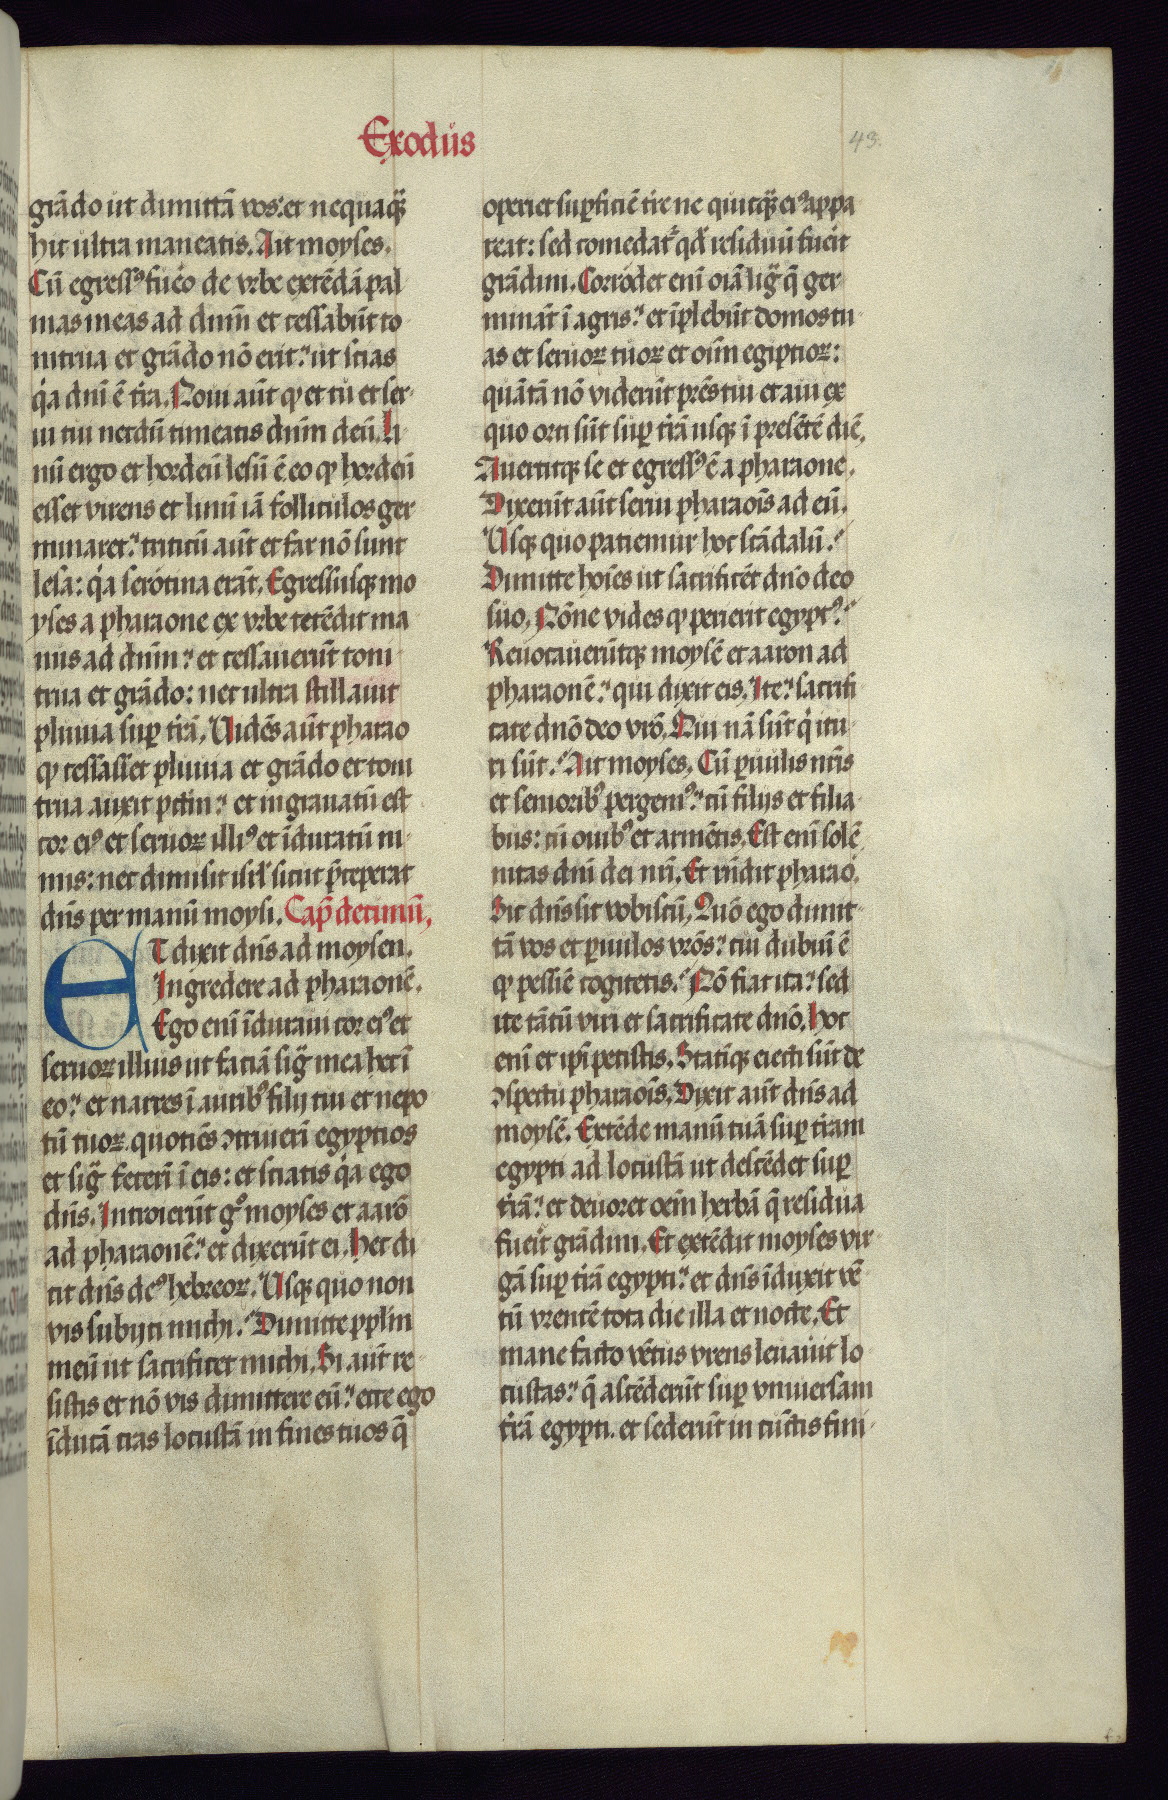 Exodus
43.
grādo ut dimittā vos: et nequaq̄
hic ultra maneatis. Ait moyses.
Cū egressꝰ fuero de vrbe extēdā pal
mas meas ad dnm̄ et cessabūt to
nitrua et grādo nō erit: ut scias
q̇a dnī ē t̄ra. Novi aūt ꝙ et tu et ser
ui tui necdū timeatis dnm̄ deū. Li
nū ergo et hordeū lesū ē eo ꝙ hordeū
esset virens et linū iā folliculos ger
minaret: triticū aūt et far nō sunt
lesa: q̇a serotina erāt. Egressusqꝫ mo
yses a pharaone ex vrbe tetēdit ma
nus ad dnm̄: et cessauerūt toni
trua et grādo: nec ultra stillauit
pluuia suꝑ t̄rā. Vidēs aūt pharao
ꝙ cessasset pluuia et grādo et toni
trua auxit pctm̄: et ingrauatū est
cor eiꝰ et seruoꝝ illiꝰ et īduratū ni
mis: nec dimisit isrl̄ sicut p̄ceperat
dn̄s per manū moysi. Cap̄ decimū.
ET dixit dn̄s ad moysen.
Ingredere ad pharaonē.
Ego enī īduraui cor eiꝰ et
seruoꝝ illius ut faciā siḡ mea hec ī
eo: et narres ī auribꝰ filij tui et nepo
tū tuoꝝ. quotiēs ꝯtriuerī egyptios
et siḡ fecerī ī eis: et sciatis q̇a ego
dn̄s. Introierūt gͦ moyses et aarō
ad pharaonē: et dixerūt ei. Hec di
cit dn̄s deꝰ hebreoꝝ. Vsqꝫ quo non
vis subijci michi? Dimitte pplm̄
meū ut sacrificet michi. Si aūt re
sistis et nō vis dimittere eū: ecce ego
īducā cras locustā in fines tuos q̄
operiet suꝑficiē t̄re ne quicq̄ꝫ eiꝰ appa
reat: sed comedat̉ qd̄ residuū fuerit
grādini. Corrodet enī oīa liḡ q̄ ger
mināt ī agris: et īplebūt domos tu
as et seruoꝝ tuoꝝ et oīm egiptioꝝ:
quātā nō viderūt prēs tui et aui ex
quo orti sūt suꝑ t̄rā usqꝫ ī presētē diē.
Auertitqꝫ se et egressꝰ ē a pharaone.
Dixerūt aūt serui pharaoīs ad eū.
Vsqꝫ quo patiemur hoc scādalū?
Dimitte hoīes ut sacrificēt dn̄o deo
suo. Nōne vides ꝙ perierit egyptꝰ?
Reuocauerūtqꝫ moysē et aaron ad
pharaonē: qui dixit eis. Ite: sacrifi
cate dn̄o deo vr̄o. Qui nā sūt q̇ itu
ri sūt? Ait moyses. Cū ꝑuulis nr̄is
et senioribꝰ pergemꝰ: cū filijs et filia
bus: cū ouibꝰ et armētis. Est enī solē
nitas dn̄i dei nr̄i. Et rn̄dit pharao.
Sic dn̄s sit vobiscū. Quō ego dimit
tā vos et ꝑuulos vr̄os: cui dubiū ē
ꝙ pessīe cogitetis? Nō fiat ita: sed
ite tātū viri et sacrificate dn̄o. Hoc
enī et ipi petistis. Statīqꝫ eiecti sūt de
ꝯspectu pharaoīs. Dixit aūt dn̄s ad
moysē. Extēde manū tuā suꝑ t̄ram
egypti ad locustā ut descēdet suꝑ
t̄rā: et deuoret oēm herbā q̄ residua
fuerit grādini. Et extēdit moyses vir
gā suꝑ t̄rā egypti: et dn̄s īduxit vē
tū vrentē tota die illa et nocte. Et
mane facto vētus vrens leuauit lo
custas: q̄ ascēderūt suꝑ vniuersam
t̄rā egypti. et sederūt in cūctis fini